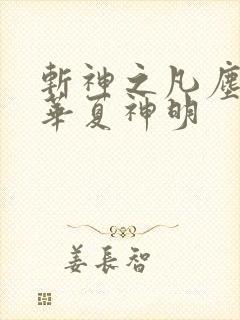 斬神之凡塵
華夏神明
姜長智